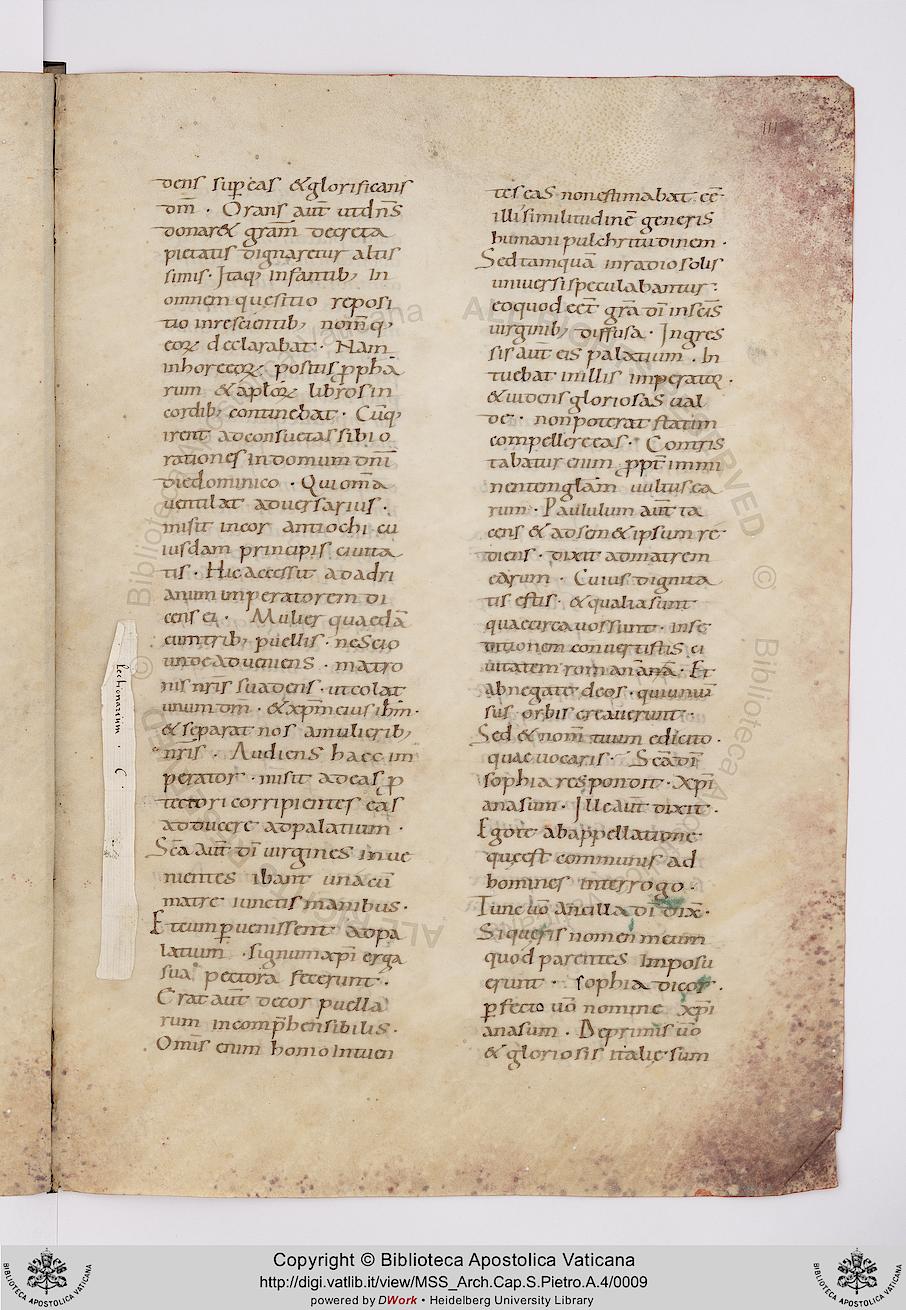 dens sup eas & glorificans
dm̄ . Orans aut̄ ut dn̄s
donar& gram̄ decreta
pietatis dignaretur altis
simis . Itaq; infantib; in
omnem quęsitio reposi
tio inrescientib; nom̄ q;
eorꝝ declarabat . Nam
inhorecorꝝ positis ꝓpha
rum & aplorꝝ libros in
cordib; continebat . Cūq;
irent ad consuetas sibi o
rationes in domum dn̄i
die dominico . Qui om̄a
uentilat aduersarius .
misit in cor antiochi cu
iusdam principis ciuita
tis . Hic accessit ad adri
anum imperatorem di
cens ei . Mulier quaedā
cum trib; puellis . nescio
unde adueniens . matro
nis nr̄is suadens . ut colat
unum dm̄ . & xp̄m eius ihm̄ .
& separat nos a mulierib;
nr̄is . Audiens haec im
perator . misit ad eas ꝓ
tectori corripientes eas
adducere ad palatium .
Sc̄a aut̄ dī uirgines inue
nientes ibant unā cū
matre iunctis manibus .
Et cum ꝑuenissent ad pa
latium . signum xp̄i erga
sua pectora fecerunt .
Erat aut̄ decor puella
rum incomp̄hensibilis .
Omīs enim homo intuen
tes eas non estimabat eē
illi similitudinē generis
humani pulchritudinem .
Sed tamquā in radio solis
uniuersi speculabantur :
eo quod eēt gr̄a dī in sc̄is
uirginib; diffusa . Ingres
sis aut̄ eis palatium . In
tuebat in illis imperator .
& uidens gloriosas ual
de . non poterat statim
compellere eas . Contris
tabatur enim ꝓpt̄ immi
nentem glām uultus ea
rum . Paululum aut̄ ta
cens & ad sem&ipsum re
diens . dixit ad matrem
earum . Cuius dignita
tis estis . & qualia sunt
quae circa uos sunt . in se
ditionem conuertistis ci
uitatem romanam . Et
abnegate deos . qui uniuī
sus orbis creauerunt .
Sed & nom̄ tuum edicito .
quae uocaris . Sc̄a dī
sophia respondit . xp̄i
ana sum . Ille aut̄ dixit .
Ego te ab appellatione
quę est communis ad
homines interrogo .
Tunc uō ancilla dī dix̄ .
Si queris nomen meum
quod parentes imposu
erunt . sophia dicor .
ꝑfecto uō nomine xp̄i
ana sum . De primis uō
& gloriosis italię sum
lectionarium . C
Copyright © Biblioteca Apostolica Vaticana
http://digi.vatlib.it/view/MSS_Arch.Cap.S.Pietro.A.4/0009
powered by DWork • Heidelberg University Library